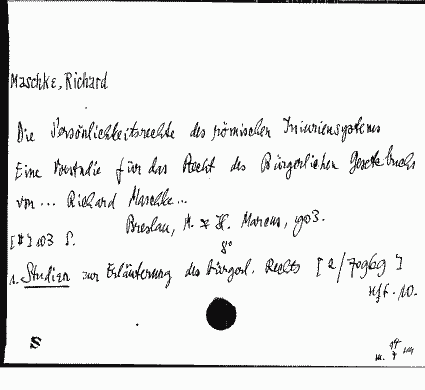 Maschke, Richard
Die Persönlichkeitsrechte des römischen Iniuriensystems
Eine Vorstudie für das Recht des Bürgerlichen Gesetzbuchs
von ... Richard Maschke ...
Breslau, M. & H. Marcus, 1903.
[8] 103 S. 8°
1. Studien zur Erläuterung des bürgerl. Rechts [2/70969]
Hft. 10.
S